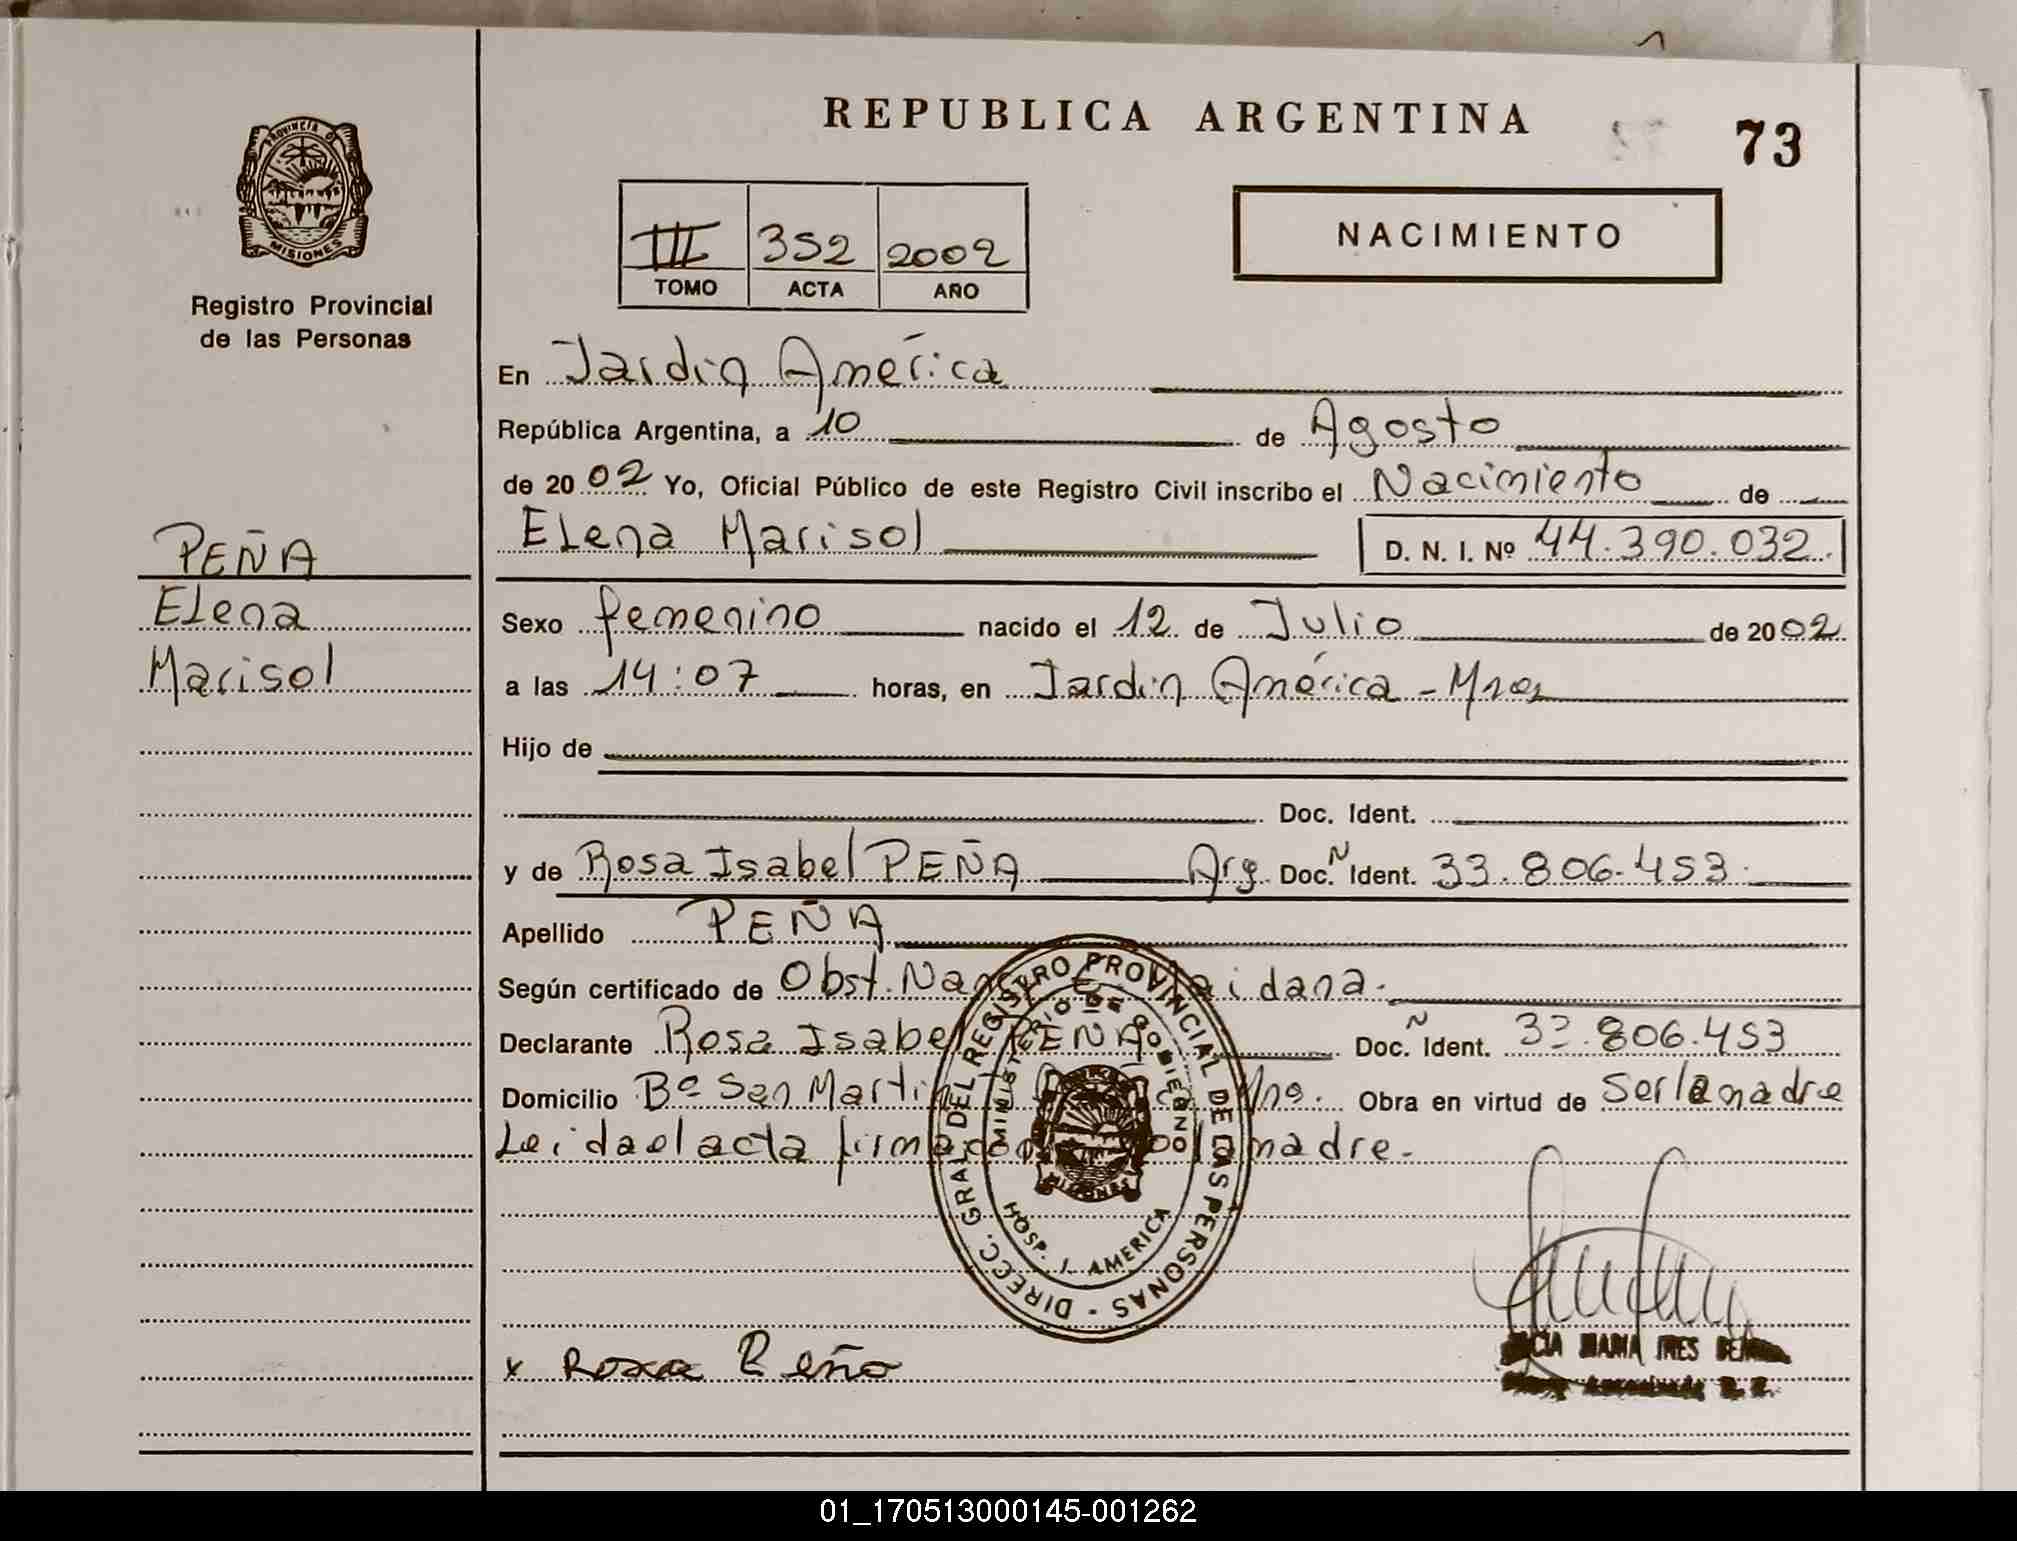 REPUBLICA ARGENTINA
73
PROVINCIA DE
MISIONES
Registro Provincial
de las Personas
III 352 2002
TOMO ACTA AÑO
NACIMIENTO
En Jardin América
República Argentina, a 10 de Agosto
de 2002 Yo, Oficial Público de este Registro Civil inscribo el Nacimiento de
Elena Marisol D. N. I. Nº 44.390.032.
PEÑA
Elena
Marisol
Sexo femenino nacido el 12 de Julio de 2002
a las 14:07 horas, en Jardin América - Mnes
Hijo de
Doc. Ident.
y de Rosa Isabel PEÑA Arg. Doc. N Ident. 33.806.453.
Apellido PEÑA
Según certificado de Obst.
Declarante Rosa Isabel PEÑA Doc. N Ident. 33.806.453
Domicilio Bº San Martin Obra en virtud de ser la madre
Leida el acta firma la madre.
DIRECC. GRAL. DEL REGISTRO PROVINCIAL DE LAS PERSONAS -
MINISTERIO DE GOBIERNO
MISIONES
HOSP. J. AMERICA
x Rosa Peña
MARIA
01_170513000145-001262